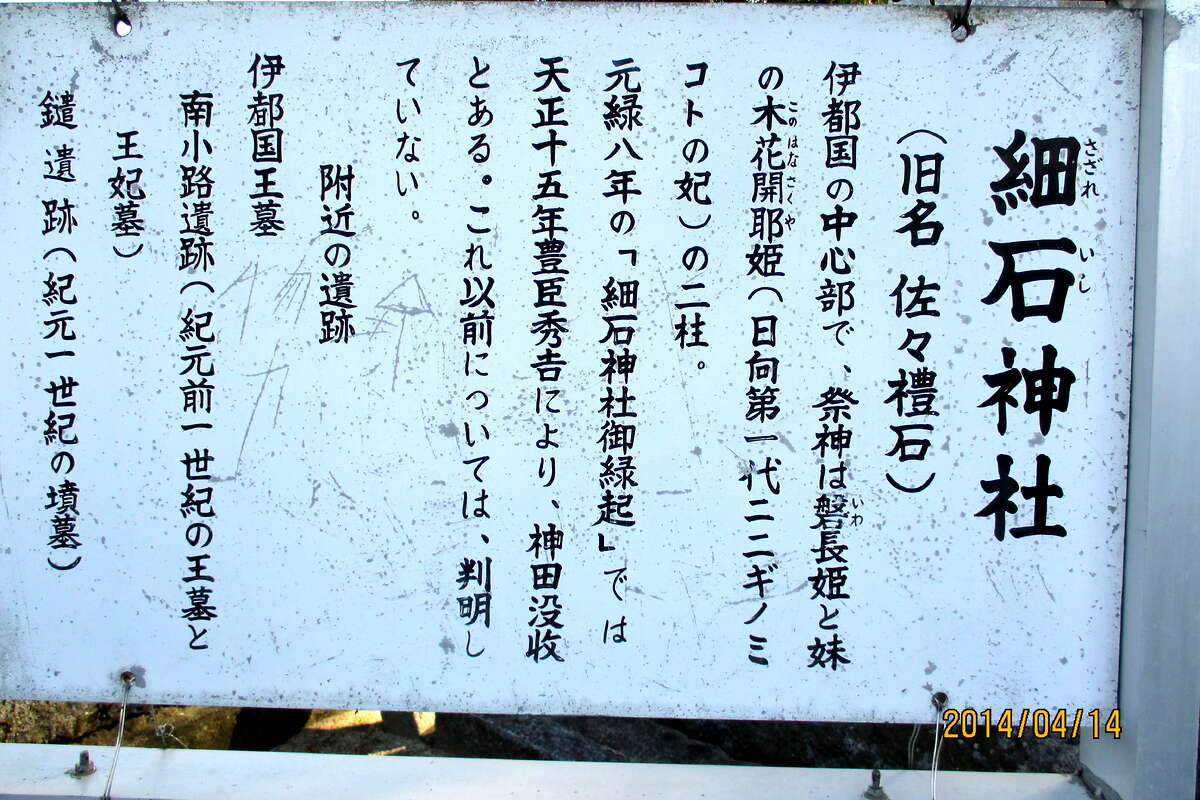 細石神社
さざれ いし
(旧名 佐々禮石)
伊都国の中心部で、祭神は磐長姫と妹
いわ
の木花開耶姫(日向第一代ニニギノミ
このはなさくや
コトの妃)の二柱。
元緑八年の「細石神社御緑起」では
天正十五年豊臣秀吉により、神田没收
とある。これ以前については、判明し
ていない。
附近の遺跡
伊都国王墓
南小路遺跡(紀元前一世紀の王墓と
王妃墓)
鑓遺跡(紀元一世紀の墳墓)
2014/04/14